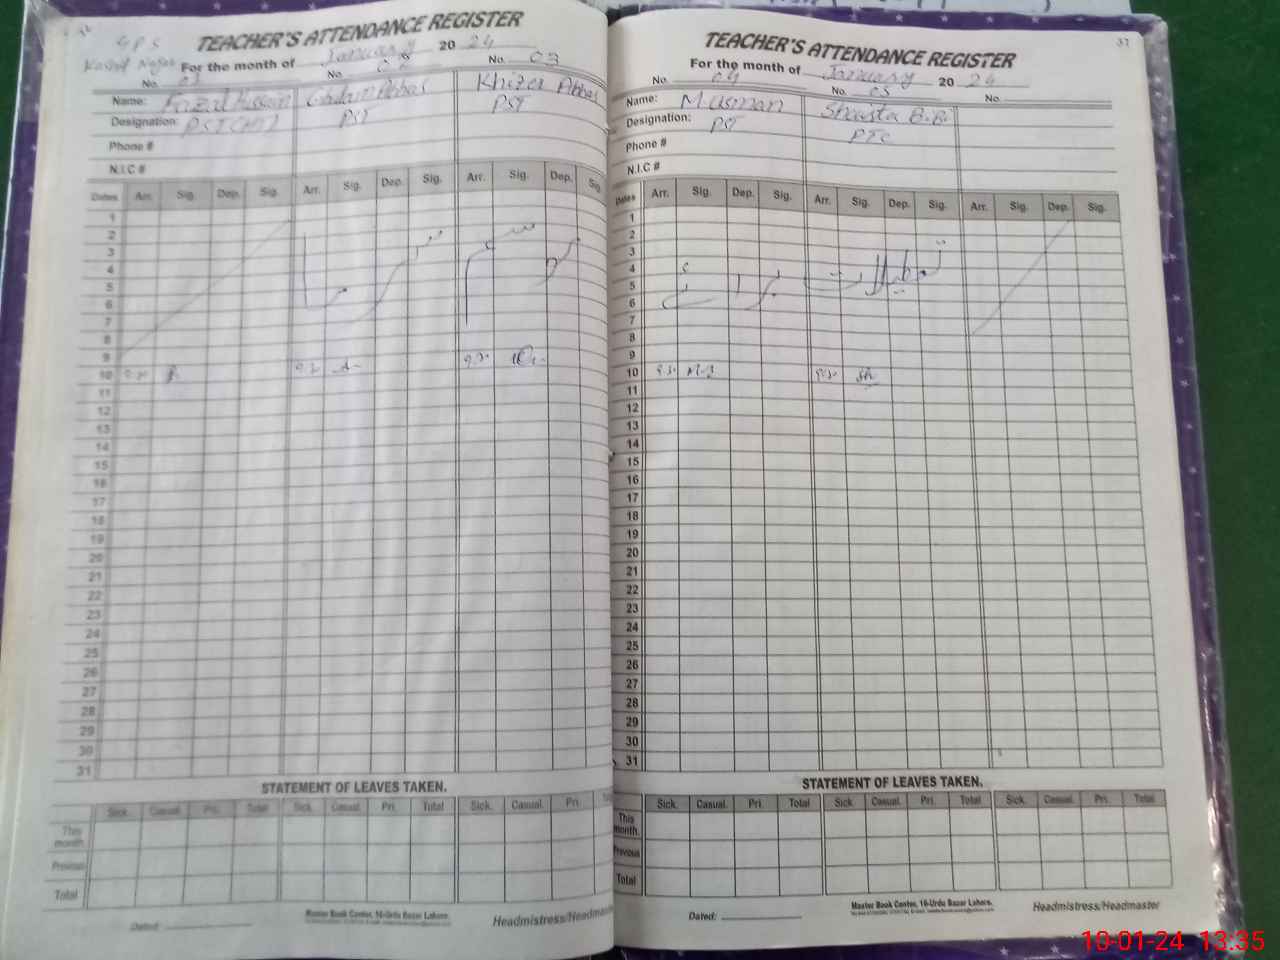 GPS
TEACHER'S ATTENDANCE REGISTER
For the month of January 2024
No. 03
Name: Ghulam Abbas Khizer Abbas
Designation: PST PST
Phone #
N.I.C #
Dates Arr. Sig. Dep. Sig. Arr. Sig. Dep. Sig. Arr. Sig. Dep. Sig.
1
2
3
4
5
6
7
8
9
10 9.30 9.30 9.30
11
12
13
14
15
16
17
18
19
20
21
22
23
24
25
26
27
28
29
30
31
STATEMENT OF LEAVES TAKEN.
Sick. Casual. Pri. Total Sick. Casual. Pri. Total Sick. Casual. Pri.
This month.
Previous
Total
Dated:
Master Book Center, 16-Urdu Bazar Lahore.
Headmistress/Headmas
31
TEACHER'S ATTENDANCE REGISTER
For the month of January 2024
No. 04 No. 05 No.
Name: M. usman Shaista B.B.
Designation: PST PTC
Phone #
N.I.C #
Dates Arr. Sig. Dep. Sig. Arr. Sig. Dep. Sig. Arr. Sig. Dep. Sig.
1
2
3
تعطیلات
4
5
6
7
8
9
10 9.30 9.30 Sh
11
12
13
14
15
16
17
18
19
20
21
22
23
24
25
26
27
28
29
30
31
STATEMENT OF LEAVES TAKEN.
Sick. Casual. Pri. Total Sick. Casual. Pri. Total Sick. Casual. Pri. Total
This month.
Previous
Total
Dated:
Master Book Center, 16-Urdu Bazar Lahore.
Headmistress/Headmaster
10-01-24 13:35